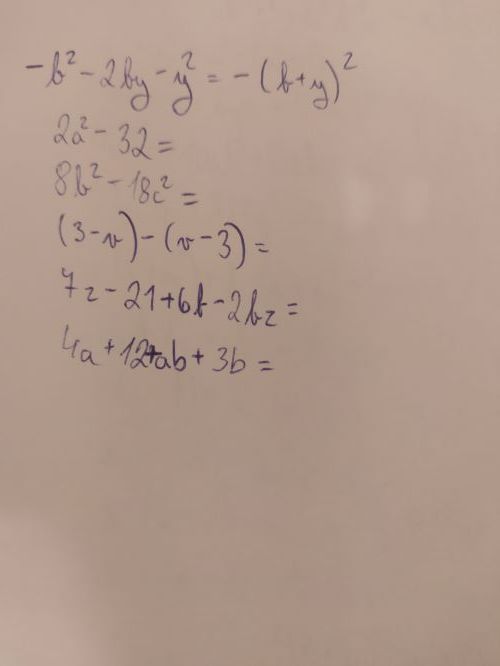 -b² - 2by - y² = -(b+y)²
2a² - 32 =
8b² - 18c² =
(3-v) - (v-3) =
7z - 21 + 6b - 2bz =
4a + 12 + ab + 3b =